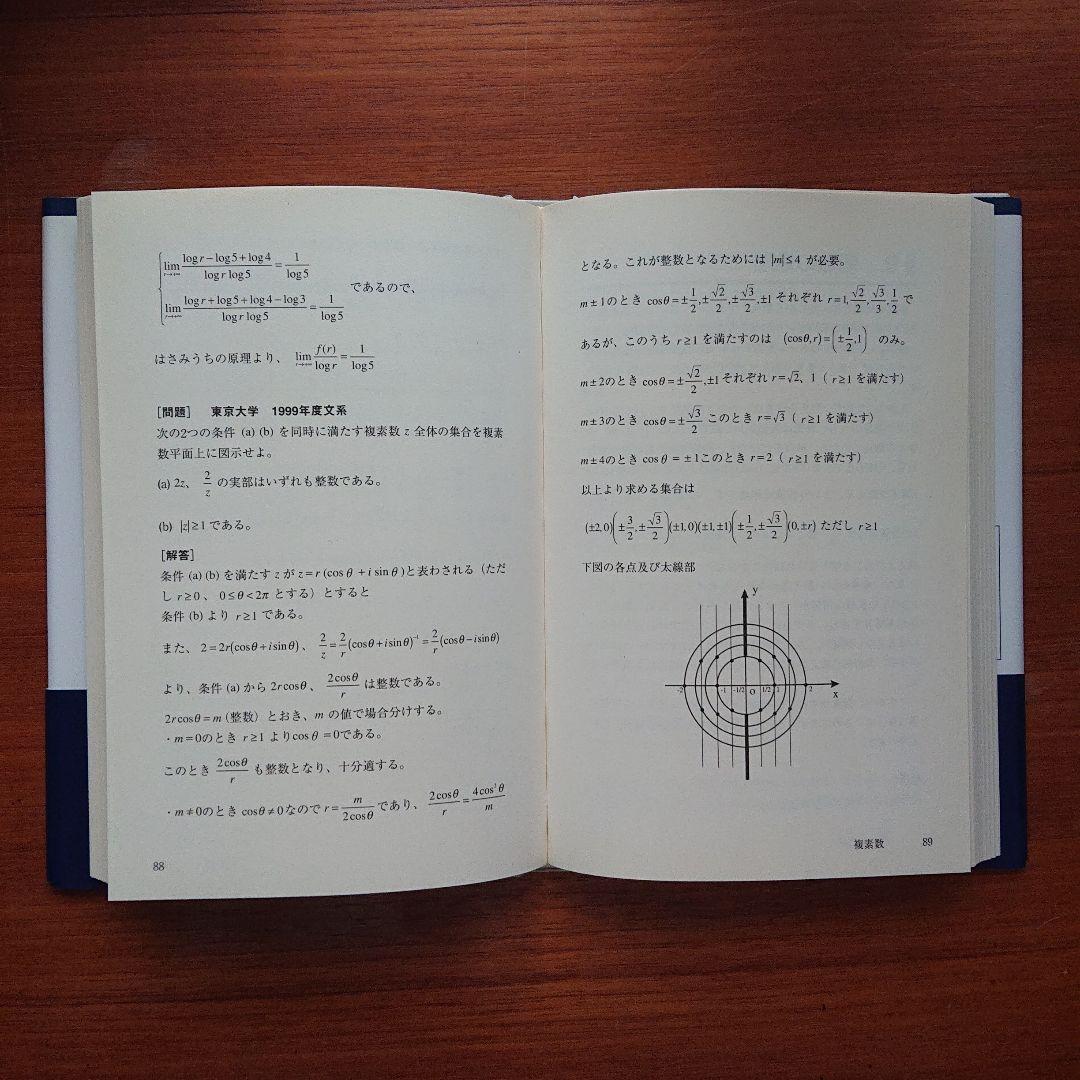 lim r→+∞ (log r－log5＋log4)/(log r log5)＝1/log5
lim r→+∞ (log r＋log5＋log4－log3)/(log r log5)＝1/log5 であるので、
はさみうちの原理より、 lim r→+∞ f(r)/log r＝1/log5
[問題]　東京大学　1999年度文系
次の2つの条件 (a) (b) を同時に満たす複素数 z 全体の集合を複素
数平面上に図示せよ。
(a) 2z、 2/z の実部はいずれも整数である。
(b) |z|≥1 である。
[解答]
条件 (a) (b) を満たす z が z＝r (cos θ ＋i sin θ) と表わされる（ただ
し r≥0 、 0≤θ<2π とする）とすると
条件 (b) より r≥1 である。
また、 2＝2r(cosθ＋isinθ) 、 2/z＝2/r(cosθ＋isinθ)⁻¹＝2/r(cosθ－isinθ)
より、条件 (a) から 2rcosθ、 2cosθ/r は整数である。
2rcosθ＝m（整数）とおき、m の値で場合分けする。
・m＝0のとき r≥1 よりcos θ ＝0である。
このとき 2cosθ/r も整数となり、十分適する。
・m≠0のとき cosθ≠0なので r＝m/2cosθ であり、 2cosθ/r＝4cos²θ/m
88
となる。これが整数となるためには |m|≤4 が必要。
m±1のとき cosθ＝±1/2,±√2/2,±√3/2,±1 それぞれ r＝1,√2/2,√3/3,1/2 で
あるが、このうち r≥1 を満たすのは (cosθ,r)＝(±1/2,1) のみ。
m±2のとき cosθ＝±√2/2,±1 それぞれ r＝√2、1（ r≥1 を満たす）
m±3のとき cosθ＝±√3/2 このとき r＝√3（ r≥1 を満たす）
m±4のとき cos θ ＝ ±1このとき r＝2（ r≥1 を満たす）
以上より求める集合は
(±2,0)(±3/2,±√3/2)(±1,0)(±1,±1)(±1/2,±√3/2)(0,±r) ただし r≥1
下図の各点及び太線部
y
-2 -1 -1/2 O 1/2 1 2
x
複素数 89